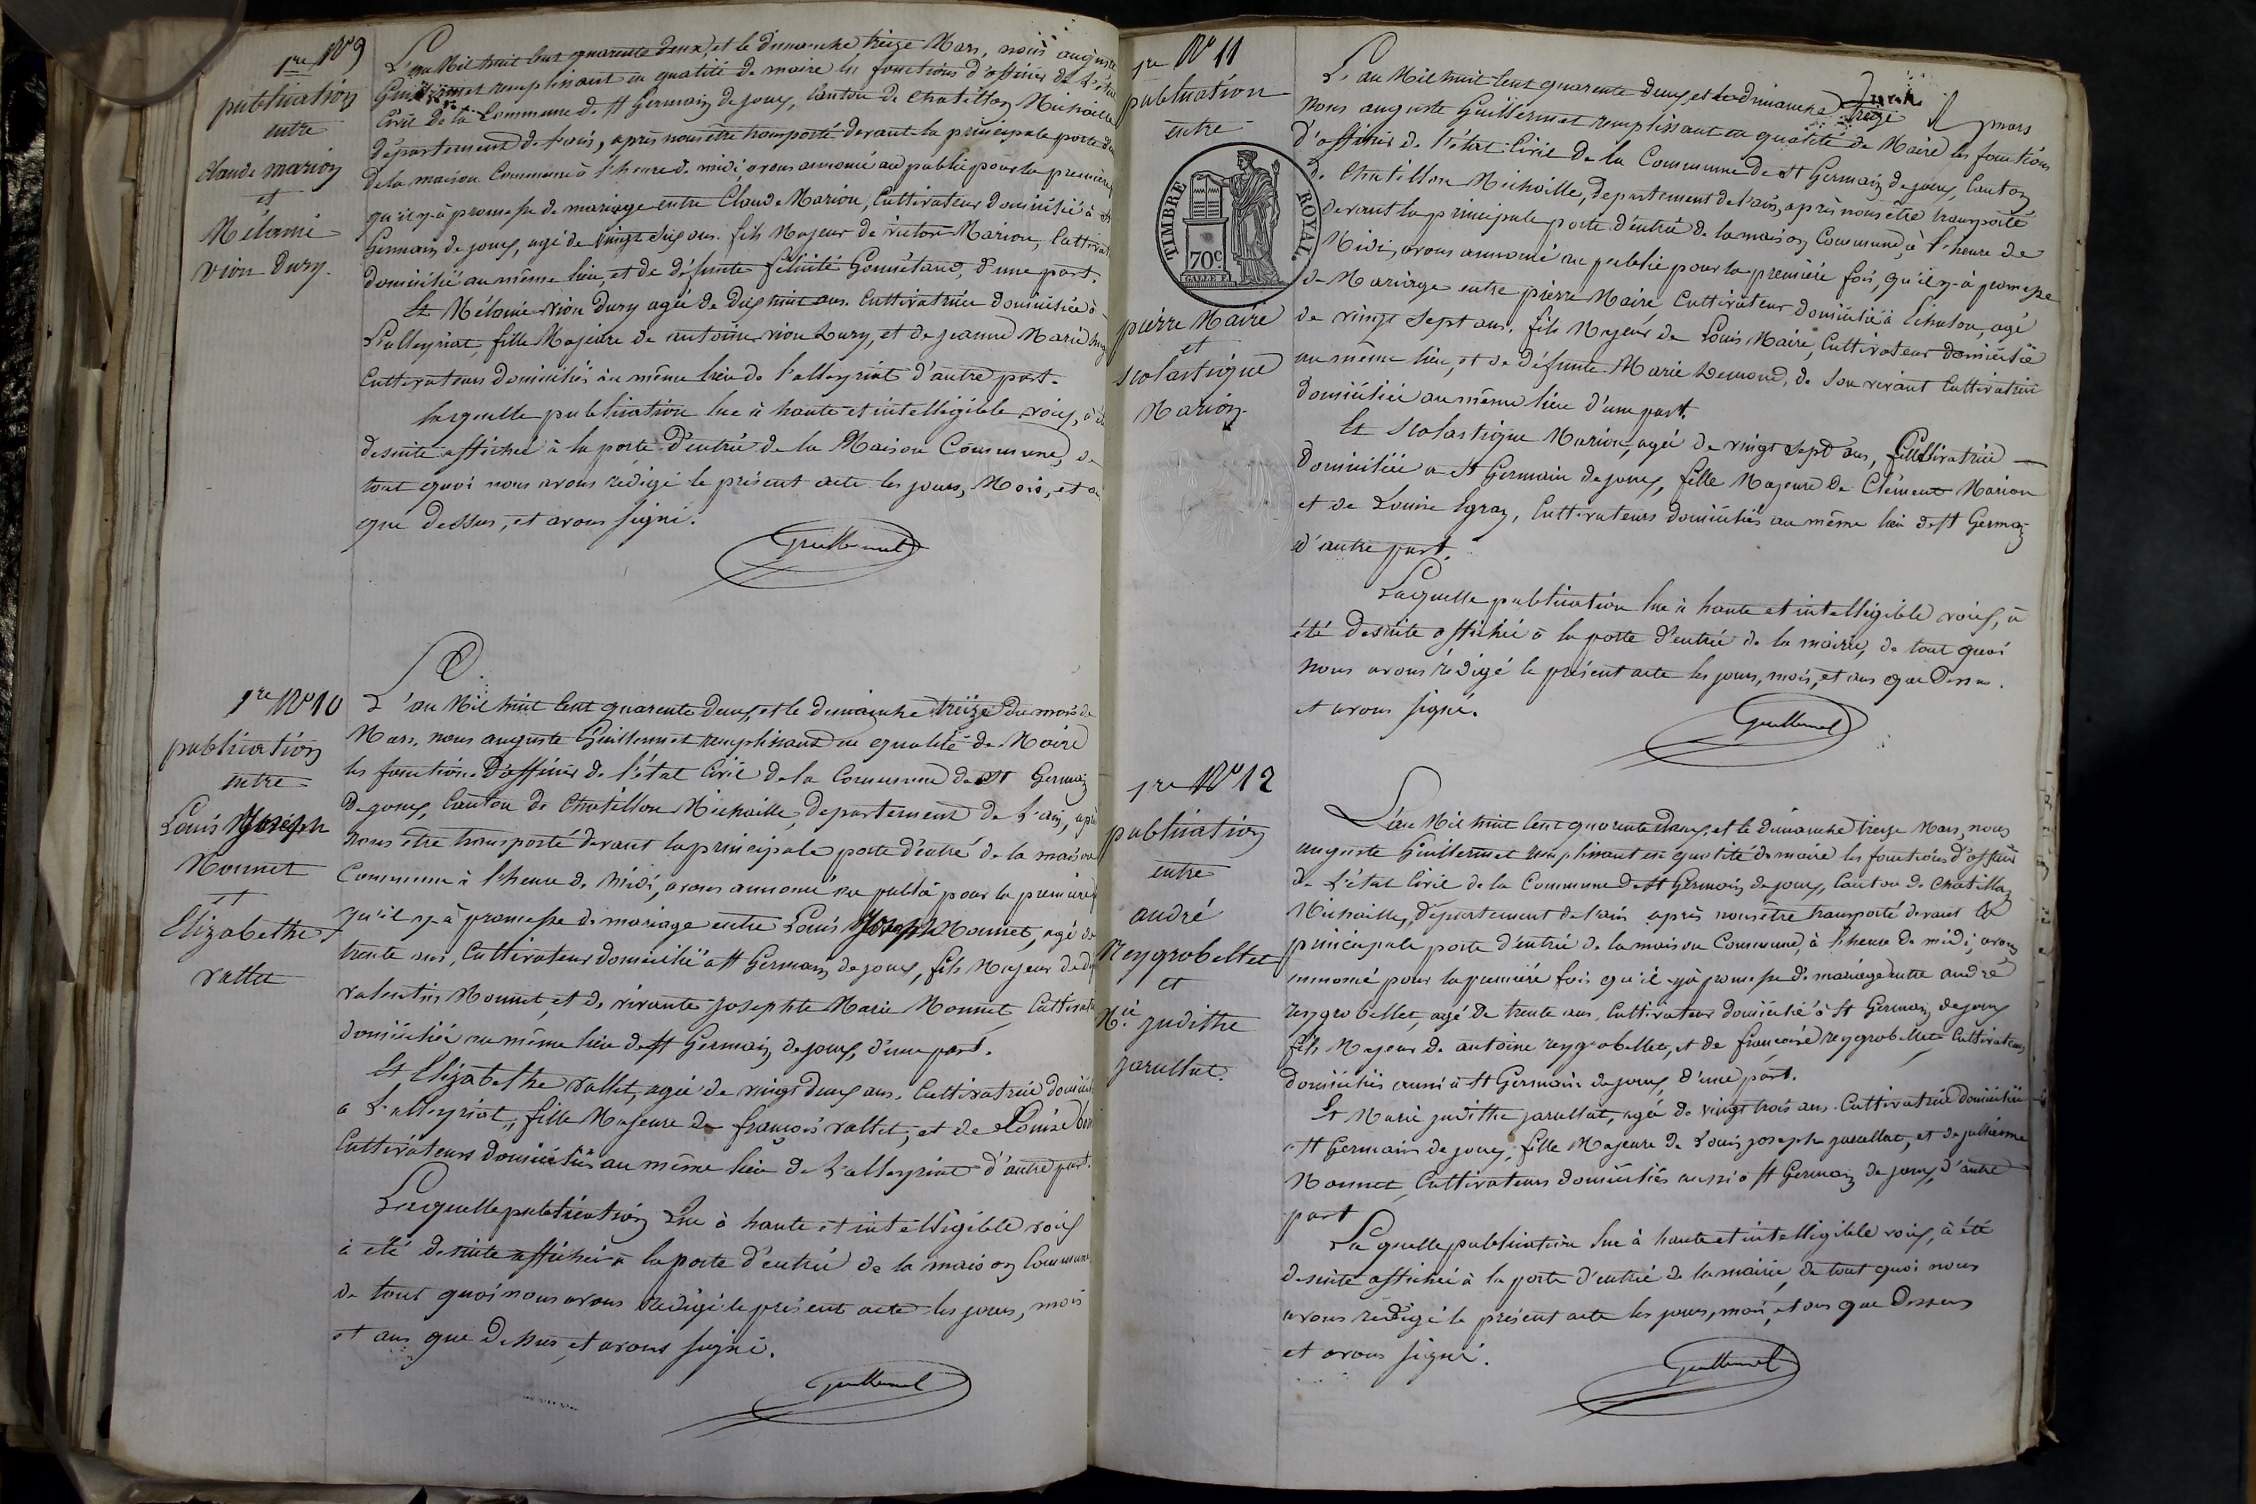 1re No 9
publication
entre
claude marion
et
Mélanie
vion Dury.
L'an Mil huit Cent quarante deux, et le dimanche treize Mars, nous auguste
Guillermet remplissant en qualité de maire les fonctions d'officier de l'état
Civil de la Commune de St Germain de joux, Canton de Chatillon Michaille
département de l'ain, après nous être transporté devant la principale porte d'en
de la maison Commune à l'heure de midi, avons annoncé au public pour la première
qu'il y à promesse de mariage entre Claude Marion, Cultivateur domicilié à St
Germain de joux, agé de vingt six ans. fils Majeur de victor Marion, Cultivat
domicilié au même lieu, et de défunte félicité d'une part.
Et Mélanie vion Dury agée de dix huit ans. Cultivatrice domiciliée à
Lalleyriat, fille Majeure de antoine vion Dury, et de jeanne Marie
Cultivateurs domiciliés au même lieu de Lalleyriat d'autre part.
Laquelle publication lue à haute et intelligible voix, à été
desuite affichée à la porte d'entrée de la Maison Commune, de
tout quoi nous avons rédigé le présent acte les jours, Mois, et an
que dessus, et avons signé.
Guillermet
1re No 10
publication
entre
Louis Joseph
Monnet
et
Elizabethe
vallet
L'an Mil huit Cent quarante deux, et le dimanche treize du mois de
Mars, nous auguste Guillermet remplissant en qualité de Maire
les fonctions d'officier de l'état Civil de la Commune de St Germain
de joux, Canton de Chatillon Michaille, departement de L'ain, après
nous être transporté devant la principale porte d'entré de la maison
Commune à l'heure de Midi, avons annoncé au public pour la première
qu'il y à promesse de mariage entre Louis Joseph Monnet, agé de
trente ans, Cultivateur domicilié a St Germain de joux, fils Majeur de
valentin Monnet, et de vivante josephte Marie Monnet, Cultivat
domiciliée au même lieu de St Germain de joux, d'une part.
Et Elizabethe vallet, agée de vingt deux ans. Cultivatrice domicil
a Lalleyriat, fille Majeure de françois vallet, et de Louise
Cultivateurs domiciliés au même lieu de Lalleyriat d'autre part.
Laquelle publication Lue à haute et intelligible voix
à eté desuite affichée à la porte d'entrée de la maison Commune
de tout quoi nous avons rédigé le présent acte les jours, mois
et ans que dessus, et avons signé.
Guillermet
1re No 11
publication
entre
TIMBRE ROYAL
70c
pierre Maire
et
scolastique
Marion.
L'an Mil huit Cent quarante deux et le dimanche treize mars
nous auguste Guillermet remplissant en qualité de Maire les fonctions
d'officier de l'état Civil de la Commune de St Germain de joux, Canton
de Chatillon Michaille, departement de l'ain, après nous être transporté
devant la principale porte d'entrée de la maison Commune, à l'heure de
Midi, avons annoncé au public pour la première fois, qu'il y à promesse
de Mariage entre pierre Maire Cultivateur domicilié à Echalon, agé
de vingt sept ans, fils Majeur de Louis Maire, Cultivateur domicilié
au même lieu, et de défunte Marie de son vivant Cultivatrice
domiciliée au même lieu d'une part.
Et Scolastique Marion, agée de vingt sept ans, Cultivatrice
domiciliée a St Germain de joux, fille Majeure de Clément Marion
et de Louise Egraz, Cultivateurs domiciliés au même lieu de St Germain
d'autre part.
Laquelle publication lue à haute et intelligible voix, à
été desuite affichée à la porte d'entrée de la mairie, de tout quoi
nous avons rédigé le présent acte les jours, mois, et ans que Dessus.
et avons signé.
Guillermet
1re No 12
publication
entre
andré
Reygrobellet
et
Mie judithe
jarullat.
L'an Mil huit Cent quarante deux, et le dimanche treize Mars, nous
auguste Guillermet remplissant en qualité de maire les fonctions d'officier
de L'état Civil de la Commune de St Germain de joux, Canton de Chatillon
Michaille, département de l'ain après nous être transporté devant la
principale porte d'entrée de la maison Commune, à l'heure de midi, avons
annoncé pour la première fois qu'il y à promesse de mariage entre andré
reygrobellet, agé de trente ans, Cultivateur domicilié à St Germain de joux
fils Majeur de antoine reygrobellet, et de françoise reygrobellet Cultivateurs
domiciliés aussi à St Germain de joux, d'une part.
Et Marie judithe jarullat, agée de vingt trois ans. Cultivatrice domiciliée
a St Germain de joux, fille Majeure de Louis joseph jarullat, et de
Monnet, Cultivateurs domiciliés aussi a St Germain de joux, d'autre
part
Laquelle publication lue à haute et intelligible voix, à été
desuite affichée à la porte d'entrée de la mairie, de tout quoi nous
avons rédigé le présent acte les jours, mois, et ans que Dessus
et avons signé.
Guillermet